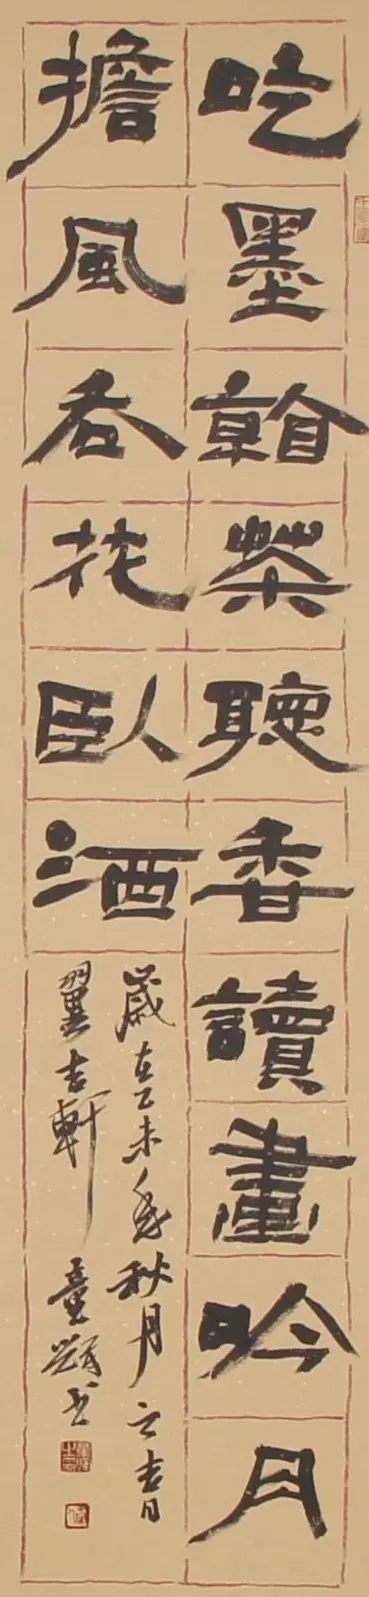 吃墨看茶聽香讀畫吟月
擔風吞花臥酒
歲在乙未年秋月之吉日
軒 童 书